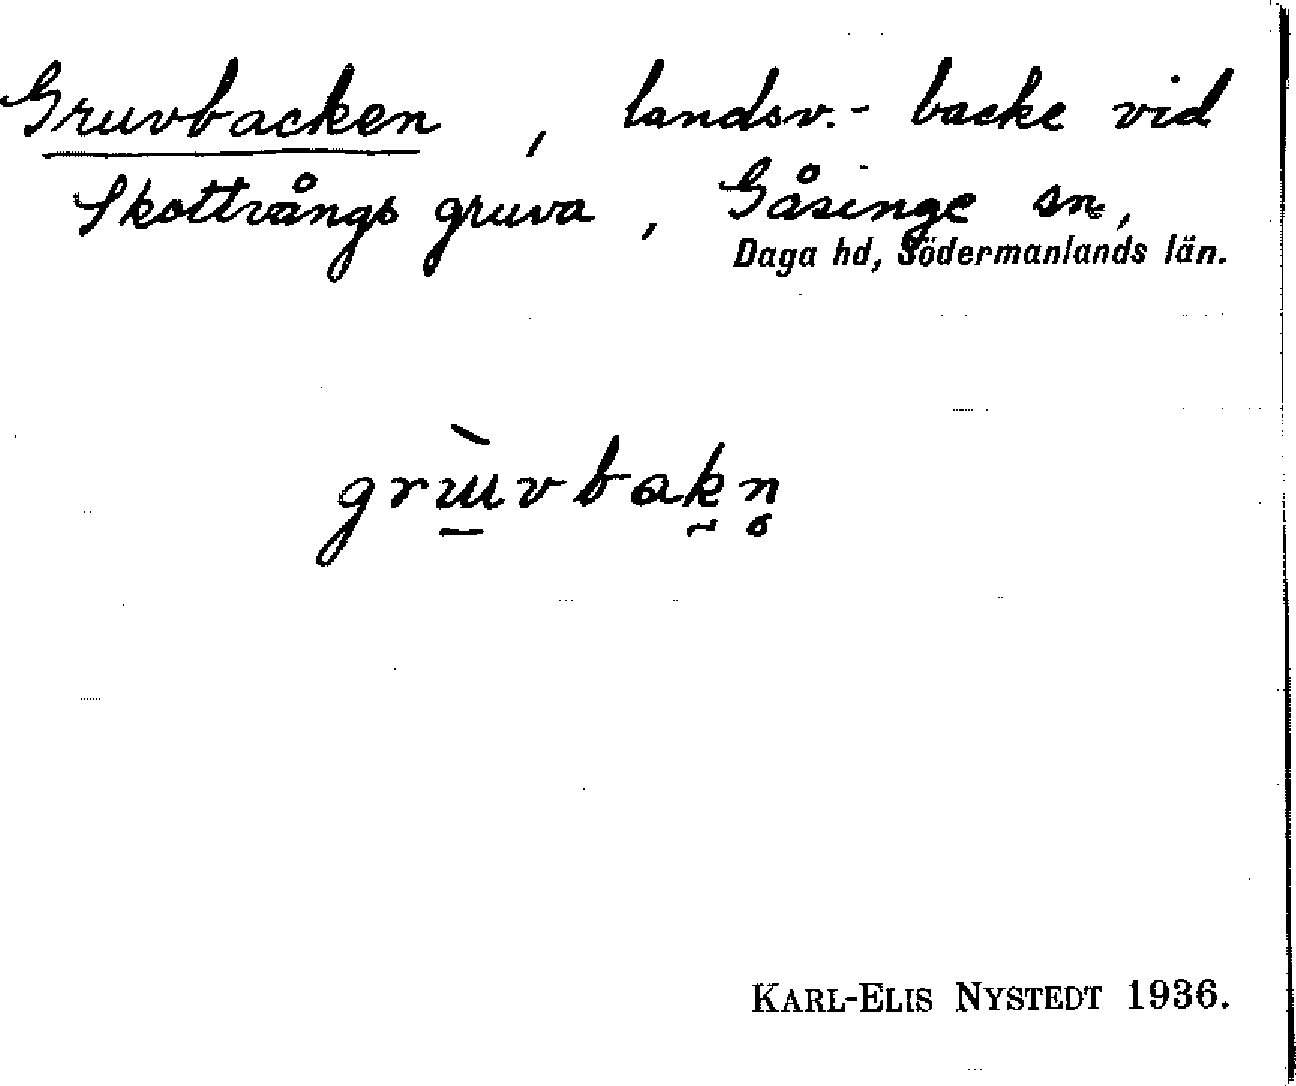 Gruvbacken, landsv.- backe vid
Skottvångs gruva, Gåsinge sn,
Daga hd, Södermanlands län.
grɯ̲̀vbak̰n̥
KARL-ELIS NYSTEDT 1936.